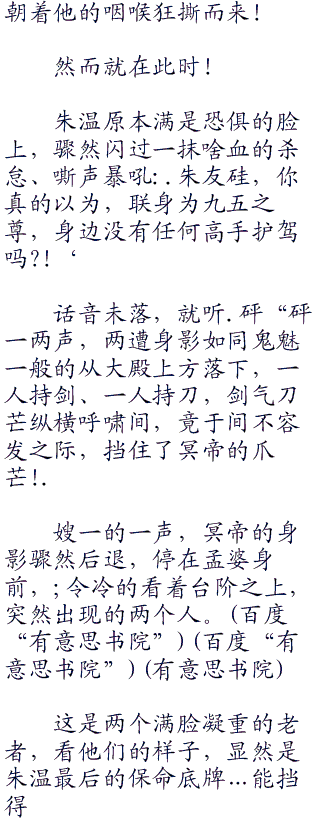 朝着他的咽喉狂撕而来！
然而就在此时！
朱温原本满是恐惧的脸
上，骤然闪过一抹啥血的杀
怠、嘶声暴吼:.朱友硅，你
真的以为，联身为九五之
尊，身边没有任何高手护驾
吗?！‘
话音未落，就听.砰“砰
一两声，两遭身影如同鬼魅
一般的从大殿上方落下，一
人持剑、一人持刀，剑气刀
芒纵横呼啸间，竟于间不容
发之际，挡住了冥帝的爪
芒！.
嫂一的一声，冥帝的身
影骤然后退，停在孟婆身
前，；令冷的看着台阶之上，
突然出现的两个人。(百度
“有意思书院”)(百度“有
意思书院”)(有意思书院)
这是两个满脸凝重的老
者，看他们的样子，显然是
朱温最后的保命底牌...能挡
得